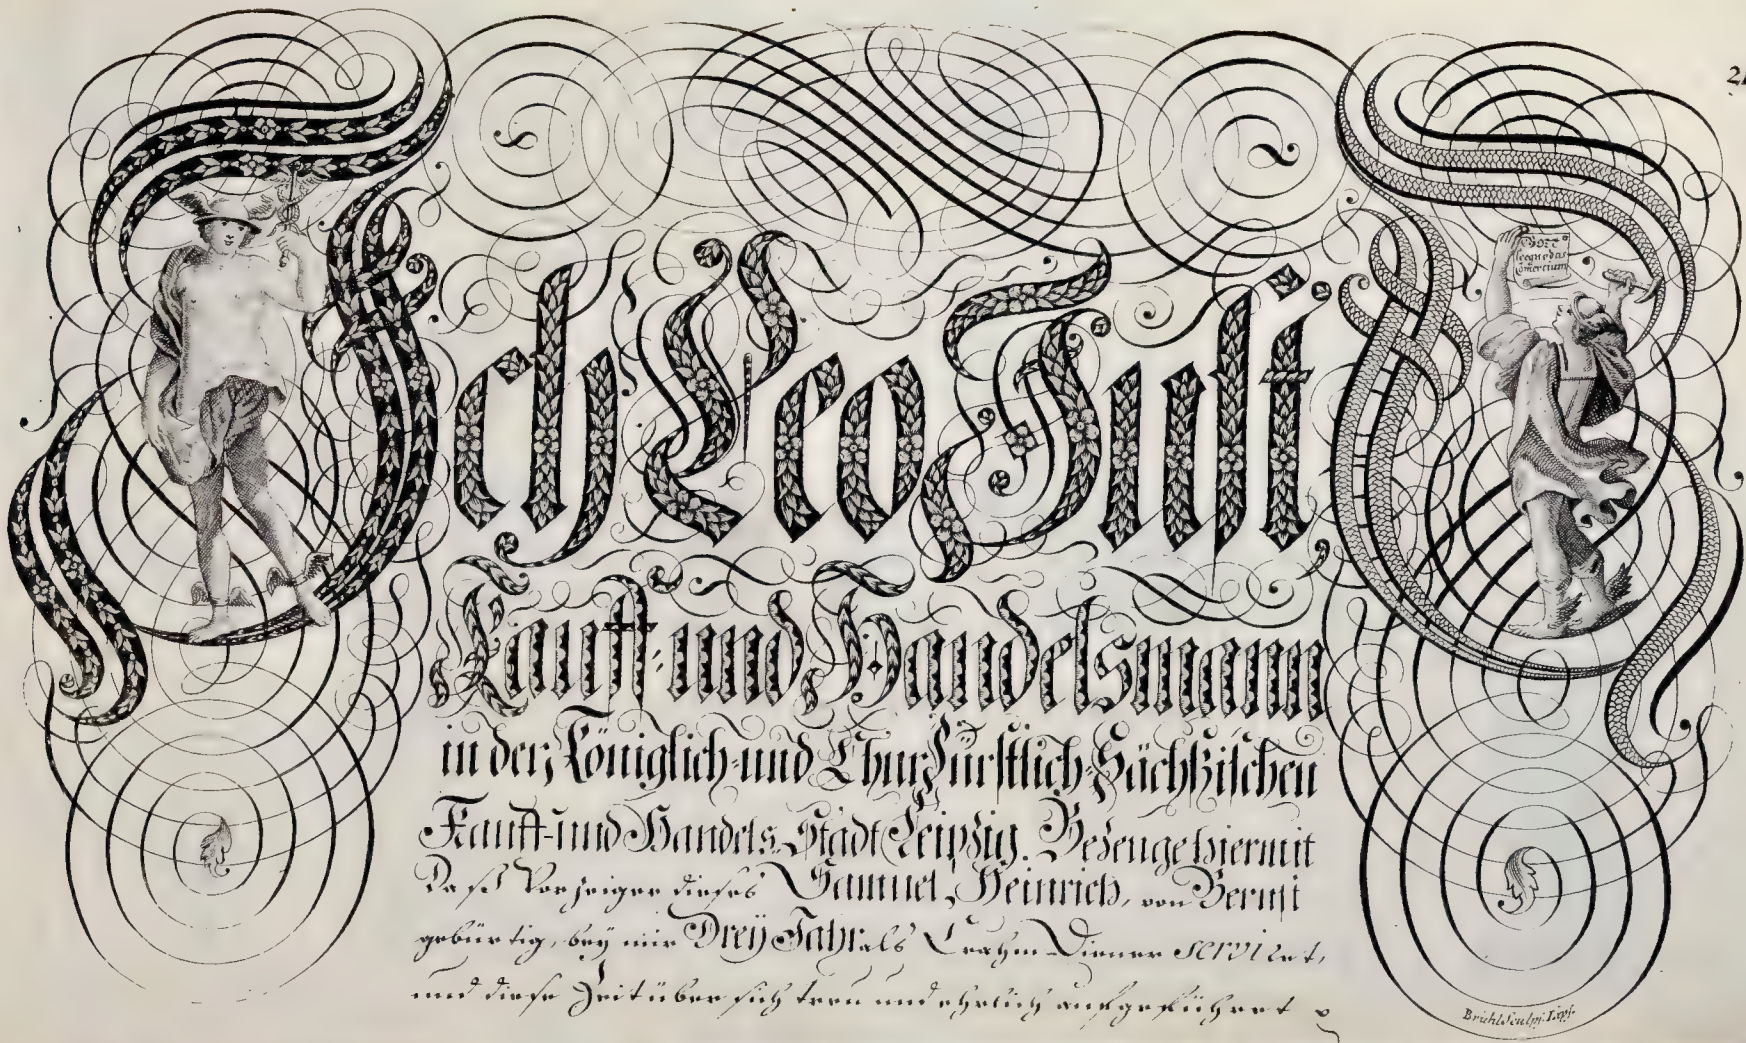 21
Ich Leo Just
Gott
seegne das
Comercium
Kauff- und Handelsmann
in der, Königlich- und ChurFürstlich-Sächsischen
Kauff- und Handels, Stadt Leipzig. Bezeuge hiermit
Daß Vorzeiger dieses Samuel, Heinrich, von
gebürtig, bey mir Dreÿ Jahr als Crahm-Diener serviret,
und diese Zeit über sich treu und ehrlich aufgeführet
Brühl Sculps. Lips.